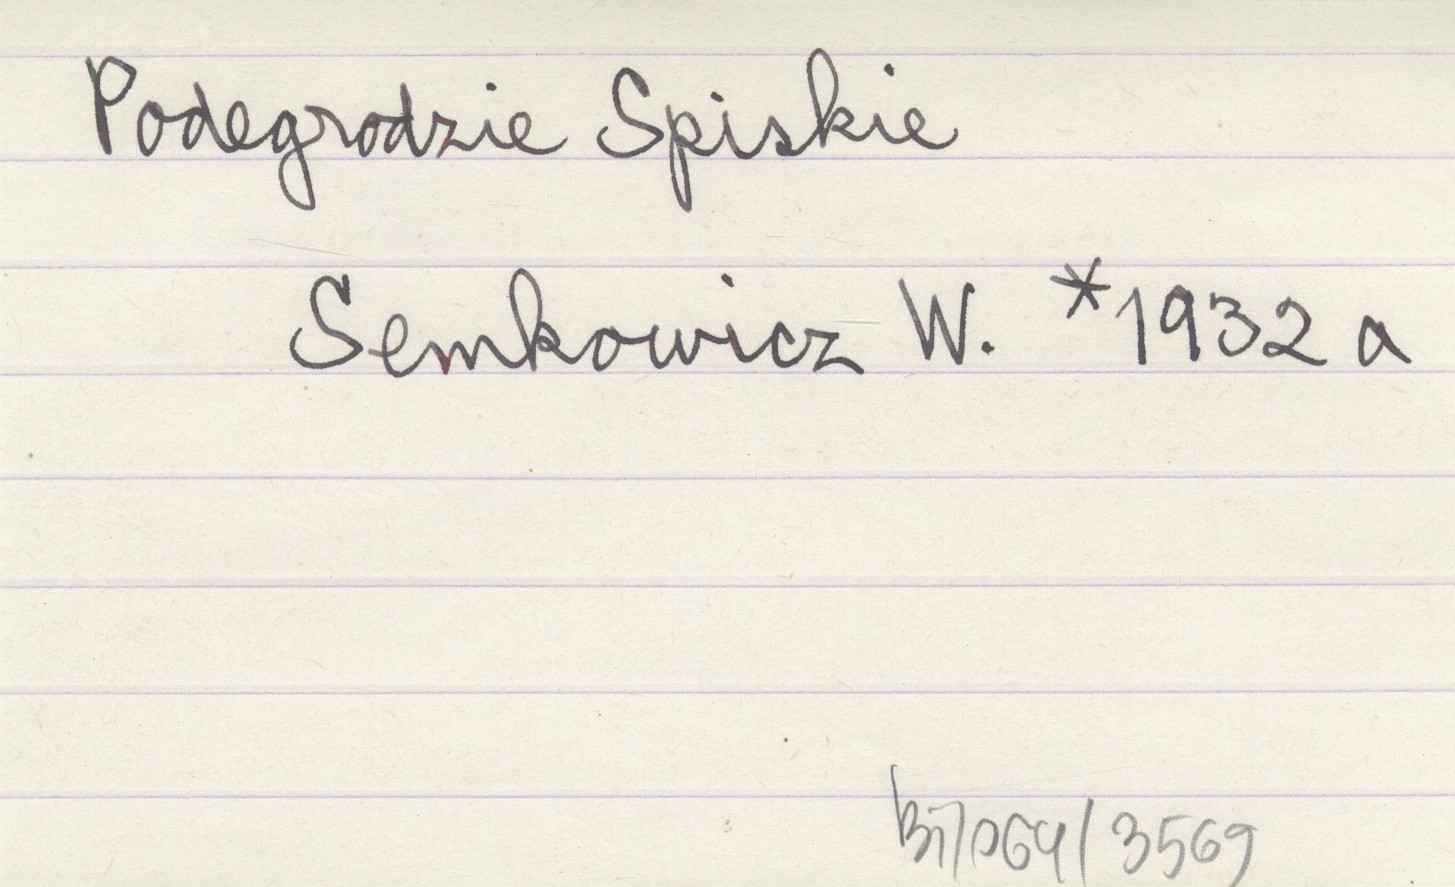 Podegrodzie Spiskie
Semkowicz W. *1932 a
bi/064/3569